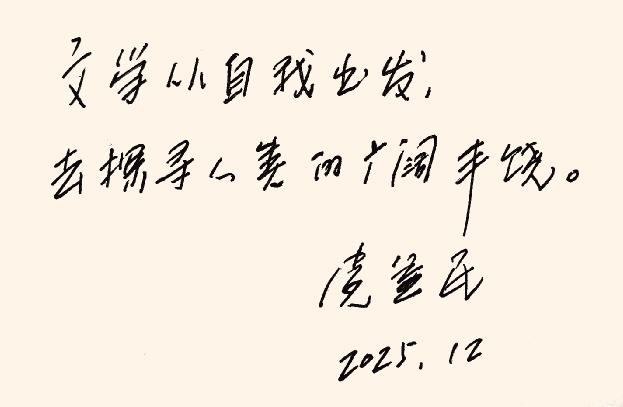 文学从自我出发，
去探寻人类的广阔丰饶。
2025.12